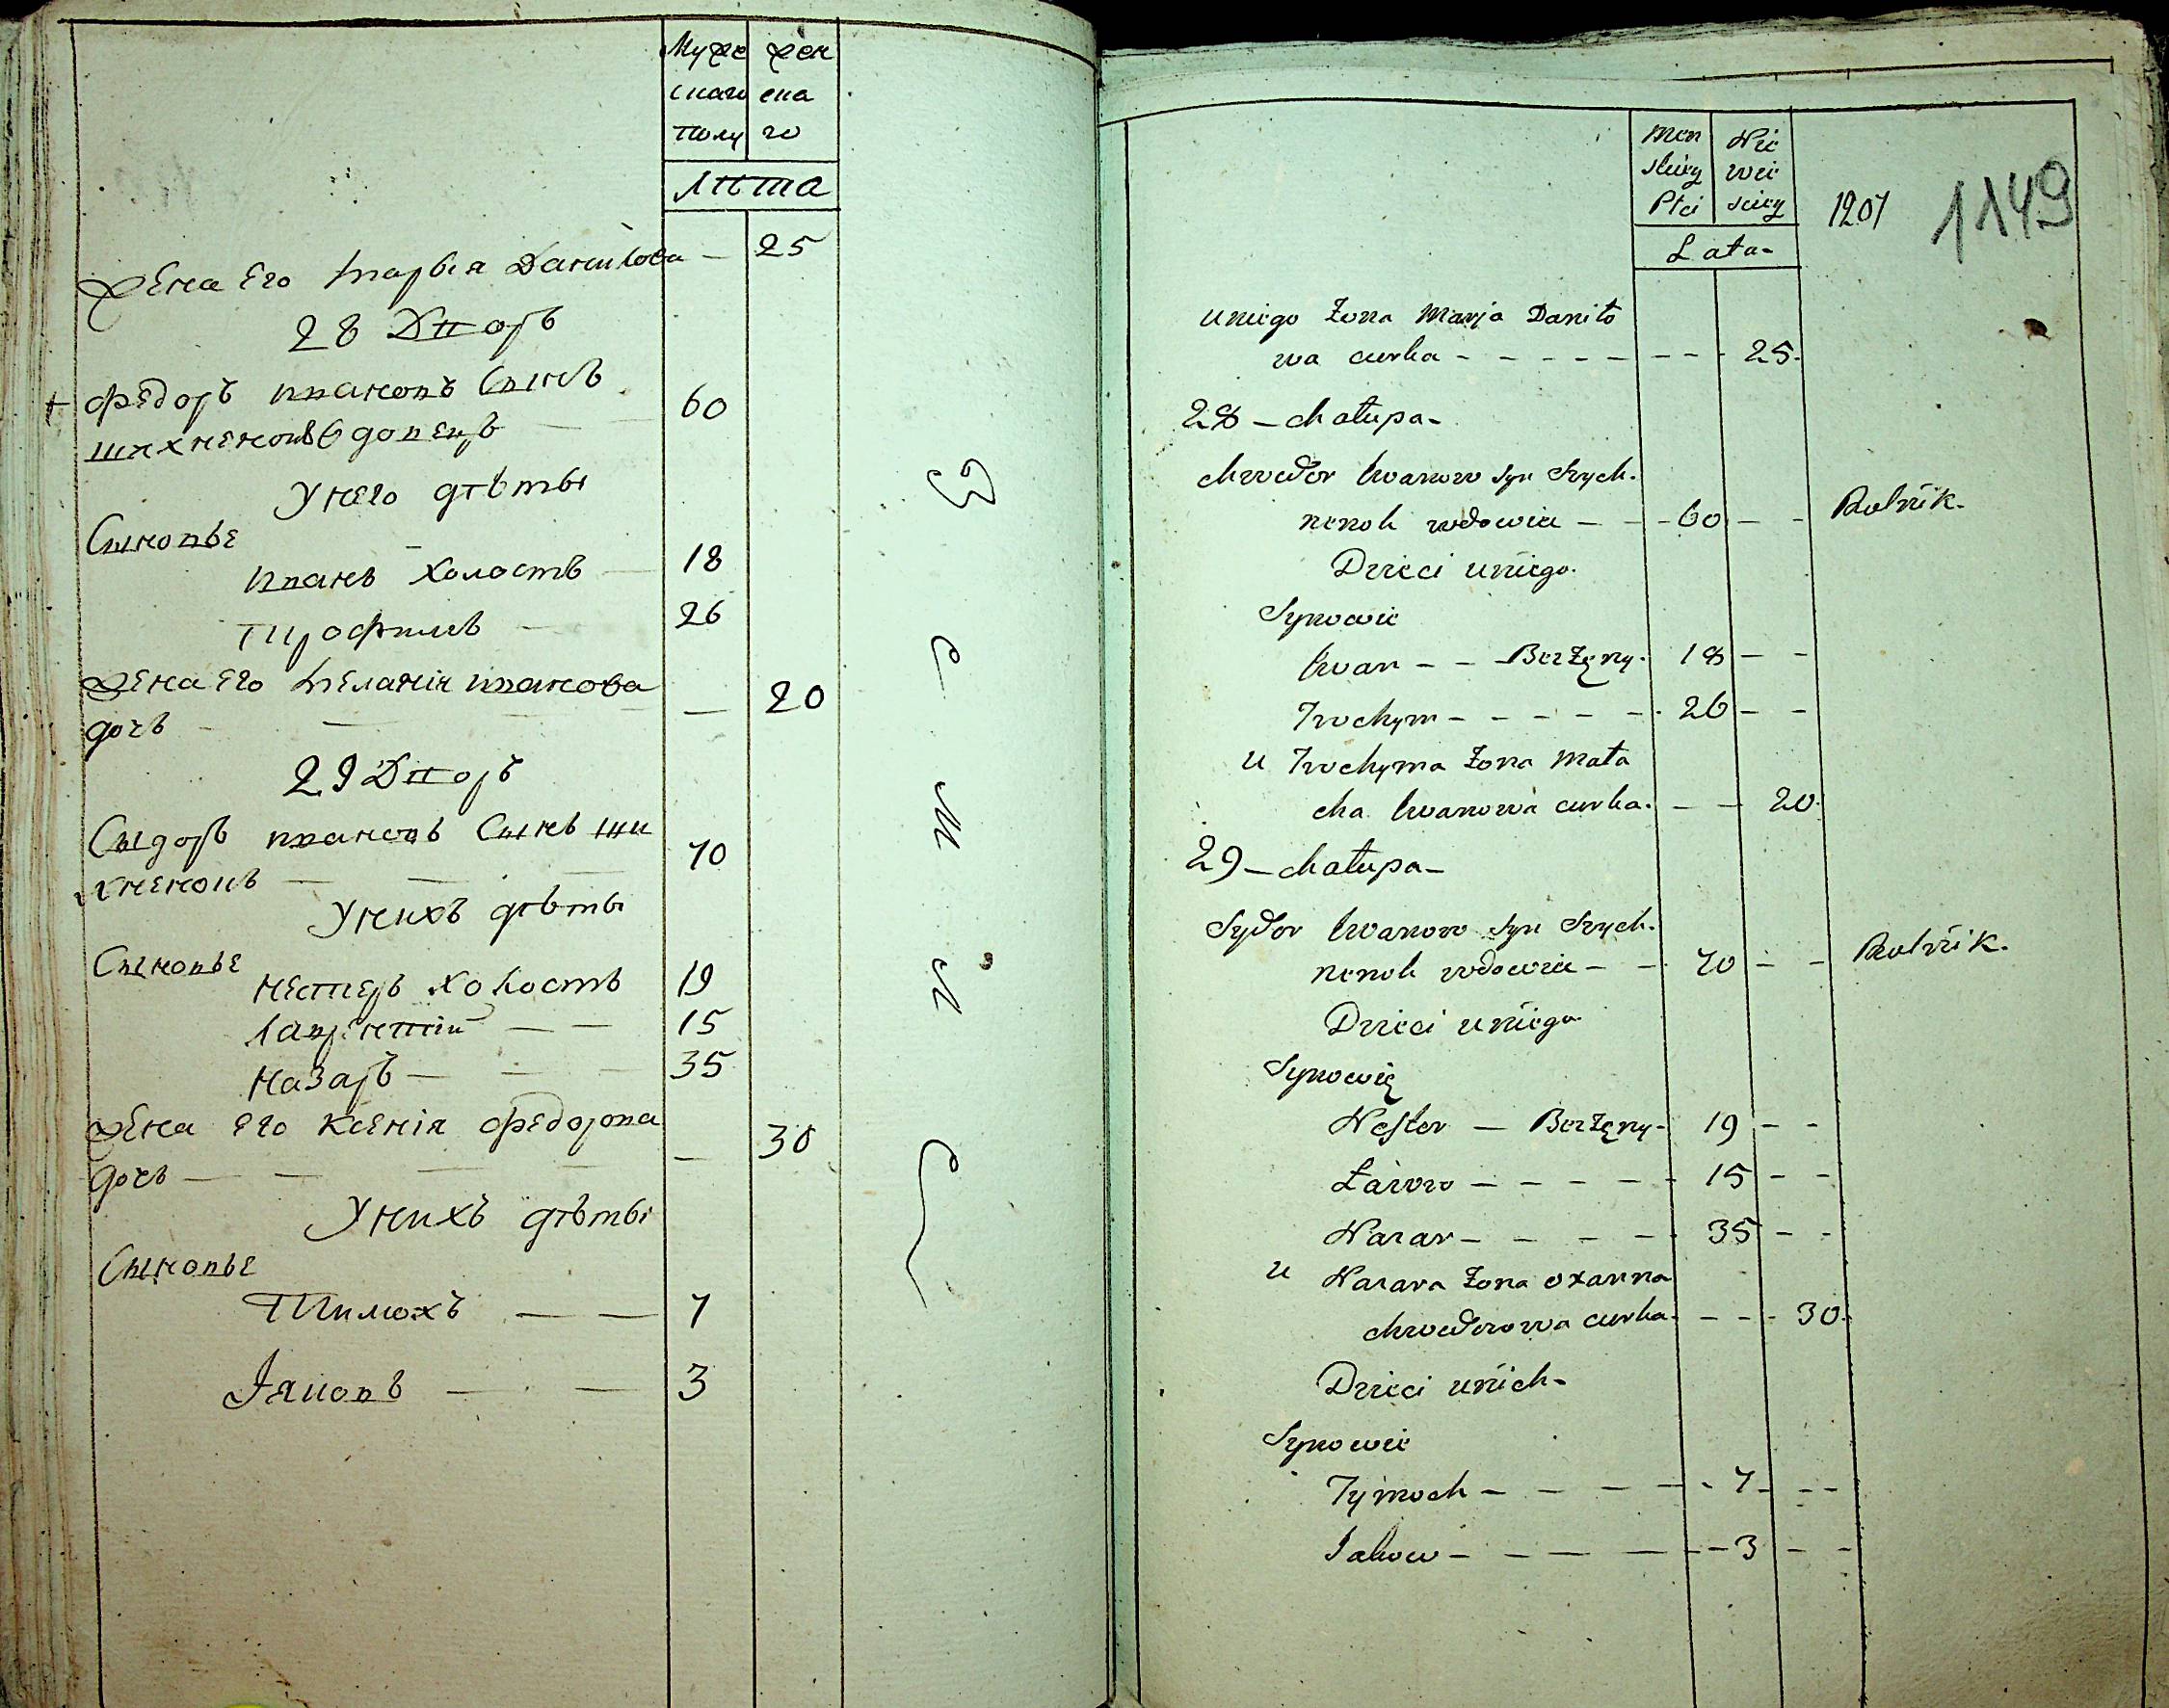 Муже жен
скаго ска
полу го
Лѣта
Жена Его Марья Данилова — 25
28 Дворъ
Федоръ Ивановъ Сынъ
Шихненокъ вдовецъ — 60
У него дѣты
Сыновье
Иванъ холостъ — 18
Трофимъ — 26
Жена Его Меланія Иванова
дочь — — — 20
29 Дворъ
Сыдоръ Ивановъ Сынъ Ши
хненокъ — — — 70
У нихъ дѣты
Сыновье
Нестеръ холостъ 19
Лаврентій — — 15
Назаръ — — — 35
Жена Его Ксенія Федорова
дочь — — — — 30
У нихъ дѣты
Сыновье
Тимохъ — — 7
Іяковъ — — 3
Men Nie
skiey wie
Płci sciey
Lata
1207
1149
u niego Żona Marja Daniło
wa curka - - - - - - - - 25.
28 - chałupa -
Chwedor Iwanow syn Szych-
nenok wdowiec - - - 60 - - Rolnik.
Dzieci u niego.
Synowie
Iwan - - - Bezżęny. 18 - -
Trochym - - - - - 26 - -
u Trochyma Żona Mała
cha Iwanowa curka. - - 20.
29 - chałupa -
Sydor Iwanow syn Szych-
nenok wdowiec - - 70 - - Rolnik.
Dzieci u niego
Synowie
Nester - Bezżęny - 19 - -
Ławro - - - - - 15 - -
Nazar - - - - - 35 - -
u Nazara Żona Oxanna
Chwedorowa curka. - - - 30.
Dzieci u nich -
Synowie
Tymoch - - - - - 7 - - -
Jakow - - - - - 3 - -